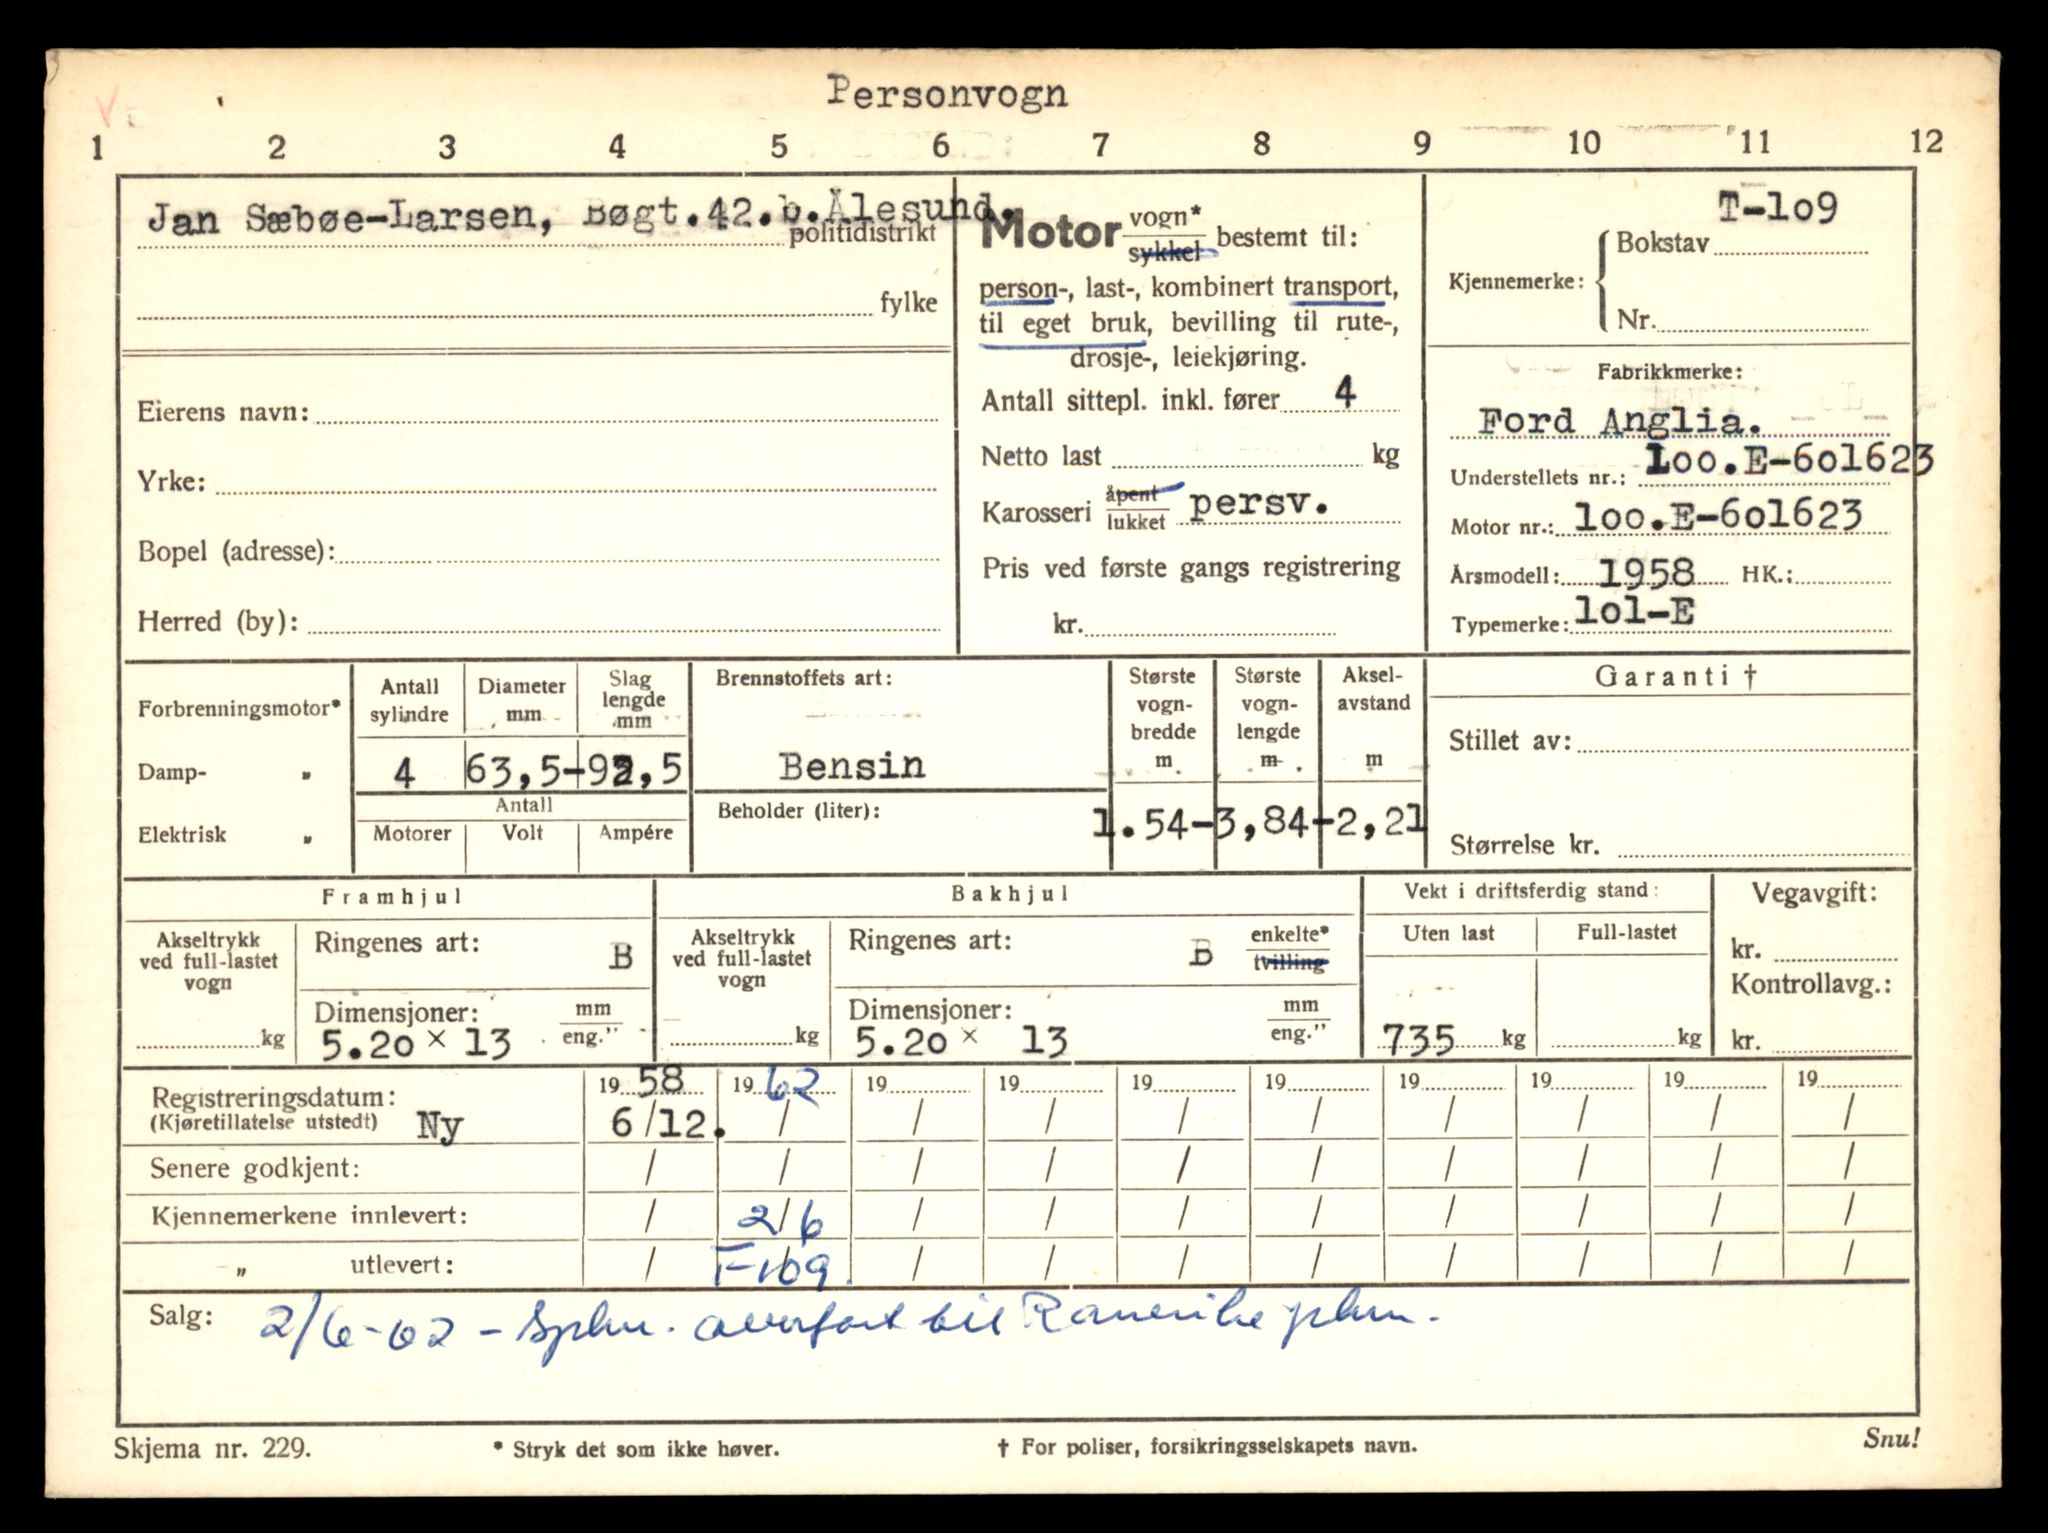 Personvogn
1 2 3 4 5 6 7 8 9 10 11 12
Jan Sæbøe-Larsen, Bøgt.42.b.Ålesund.
politidistrikt
fylke
Eierens navn:
Yrke:
Bopel (adresse):
Herred (by):
Motor vogn* / sykkel bestemt til:
person-, last-, kombinert transport,
til eget bruk, bevilling til rute-,
drosje-, leiekjøring.
Antall sittepl. inkl. fører 4
Netto last kg
Karosseri åpent / lukket persv.
Pris ved første gangs registrering
kr.
T-lo9
Kjennemerke: Bokstav
Nr.
Fabrikkmerke:
Ford Anglia.
Understellets nr.: Loo.E-6o1623
Motor nr.: loo.E-6o1623
Årsmodell: 1958 HK.:
Typemerke: lol-E
Forbrenningsmotor*
Damp- „
Elektrisk „
Antall sylindre
Diameter mm
Slag lengde mm
4 63,5-92,5
Antall
Motorer Volt Ampére
Brennstoffets art:
Bensin
Beholder (liter):
Største vogn-bredde m
Største vogn-lengde m
Aksel-avstand m
1.54-3,84-2,21
Garanti †
Stillet av:
Størrelse kr.
Framhjul
Akseltrykk ved full-lastet vogn
kg
Ringenes art: B
Dimensjoner: mm / eng."
5.20 × 13
Bakhjul
Akseltrykk ved full-lastet vogn
kg
Ringenes art: B enkelte* / tvilling
Dimensjoner: mm / eng."
5.20 × 13
Vekt i driftsferdig stand:
Uten last Full-lastet
735 kg kg
Vegavgift:
kr.
Kontrollavg.:
kr.
Registreringsdatum: 19 58 19 62 19 19 19 19 19 19 19 19
(Kjøretillatelse utstedt) Ny 6/12. / / / / / / / / /
Senere godkjent: / / / / / / / / / /
Kjennemerkene innlevert: / 2/6 / / / / / / / /
„ utlevert: / T-109. / / / / / / / /
Salg: 2/6-62 - Spkm. overført til Romerike pkm.
Skjema nr. 229.
* Stryk det som ikke høver.
† For poliser, forsikringsselskapets navn.
Snu!